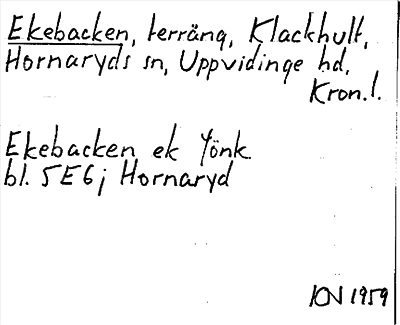 Ekebacken, terräng, Klackhult,
Hornaryds sn, Uppvidinge hd,
Kron.l.
Ekebacken ek Yönk
bl. 5E6j Hornaryd
KN 1959